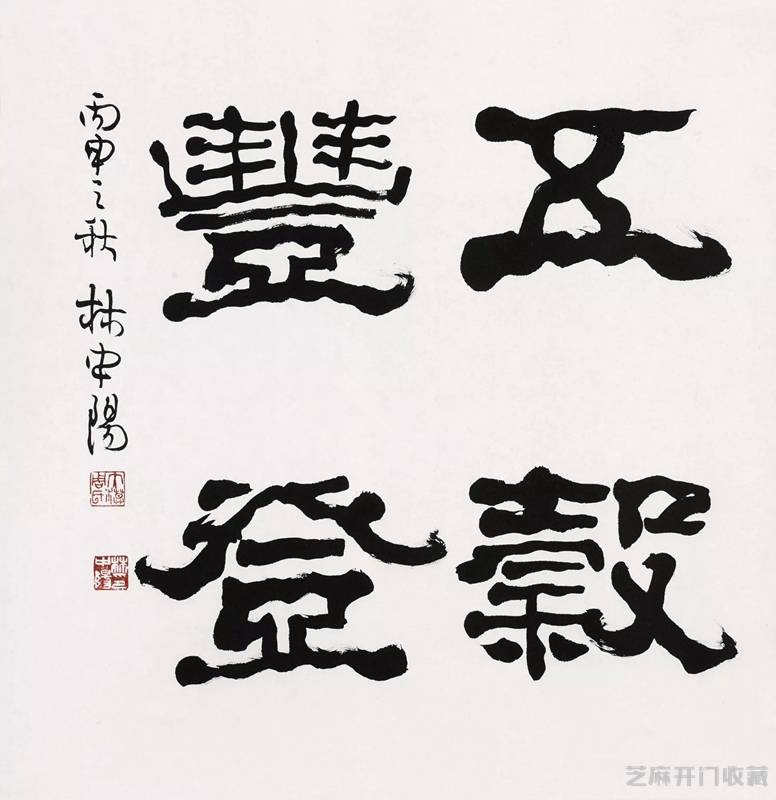 五穀
豐登
丙申之秋 林中陽
芝麻开门收藏